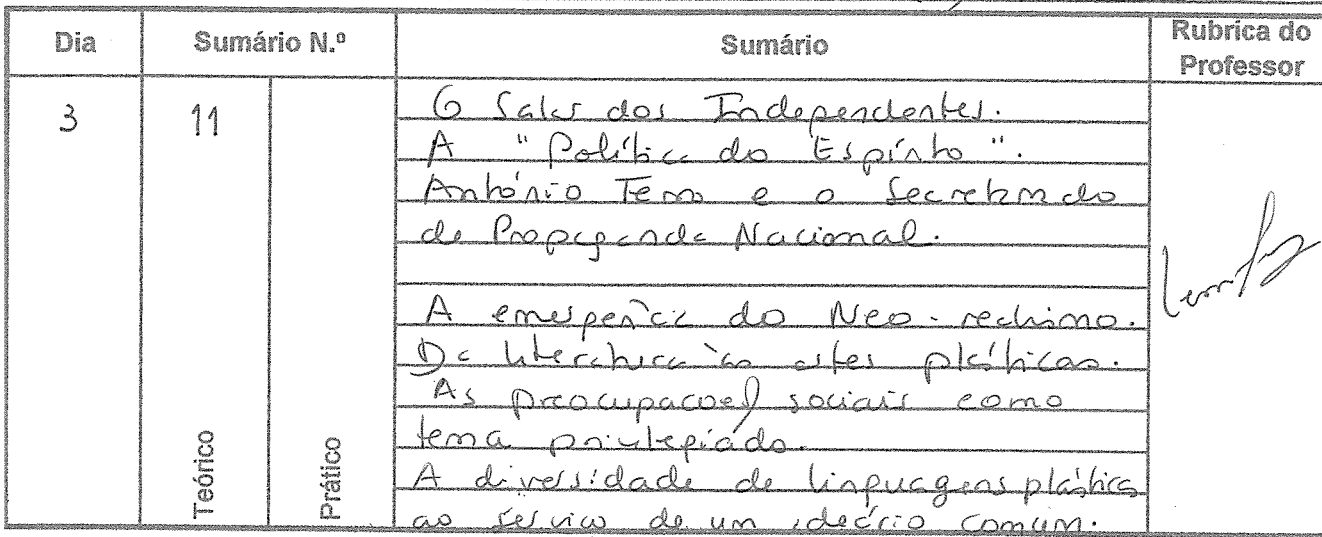 Dia Sumário N.º Sumário Rubrica do Professor
3 11
O Salão dos Independentes.
A "Política do Espírito".
António Ferro e o Secretariado
de Propaganda Nacional.
A emergência do Neo-realismo.
Da literatura às artes plásticas.
As preocupações sociais como
tema privilegiado.
A diversidade de linguagens plásticas
ao serviço de um ideário comum.
Teórico Prático